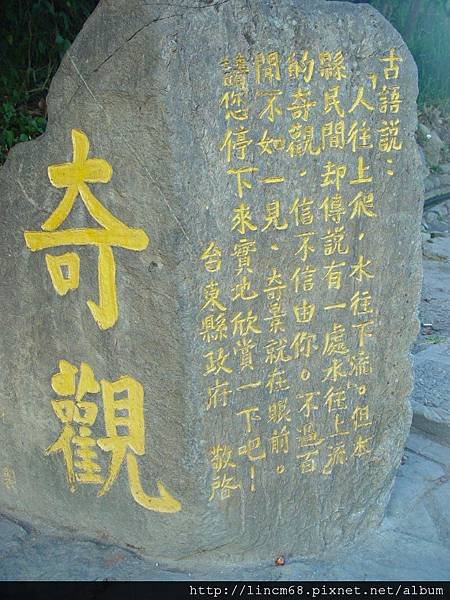 古語說：
「人往上爬，水往下流」。但本
縣民間却傳說有一處水往上流
的奇觀，信不信由你。不過百
聞不如一見、奇景就在眼前。
請您停下來實地欣賞一下吧！
台東縣政府 敬啓
奇觀
http://lincm68.pixnet.net/album